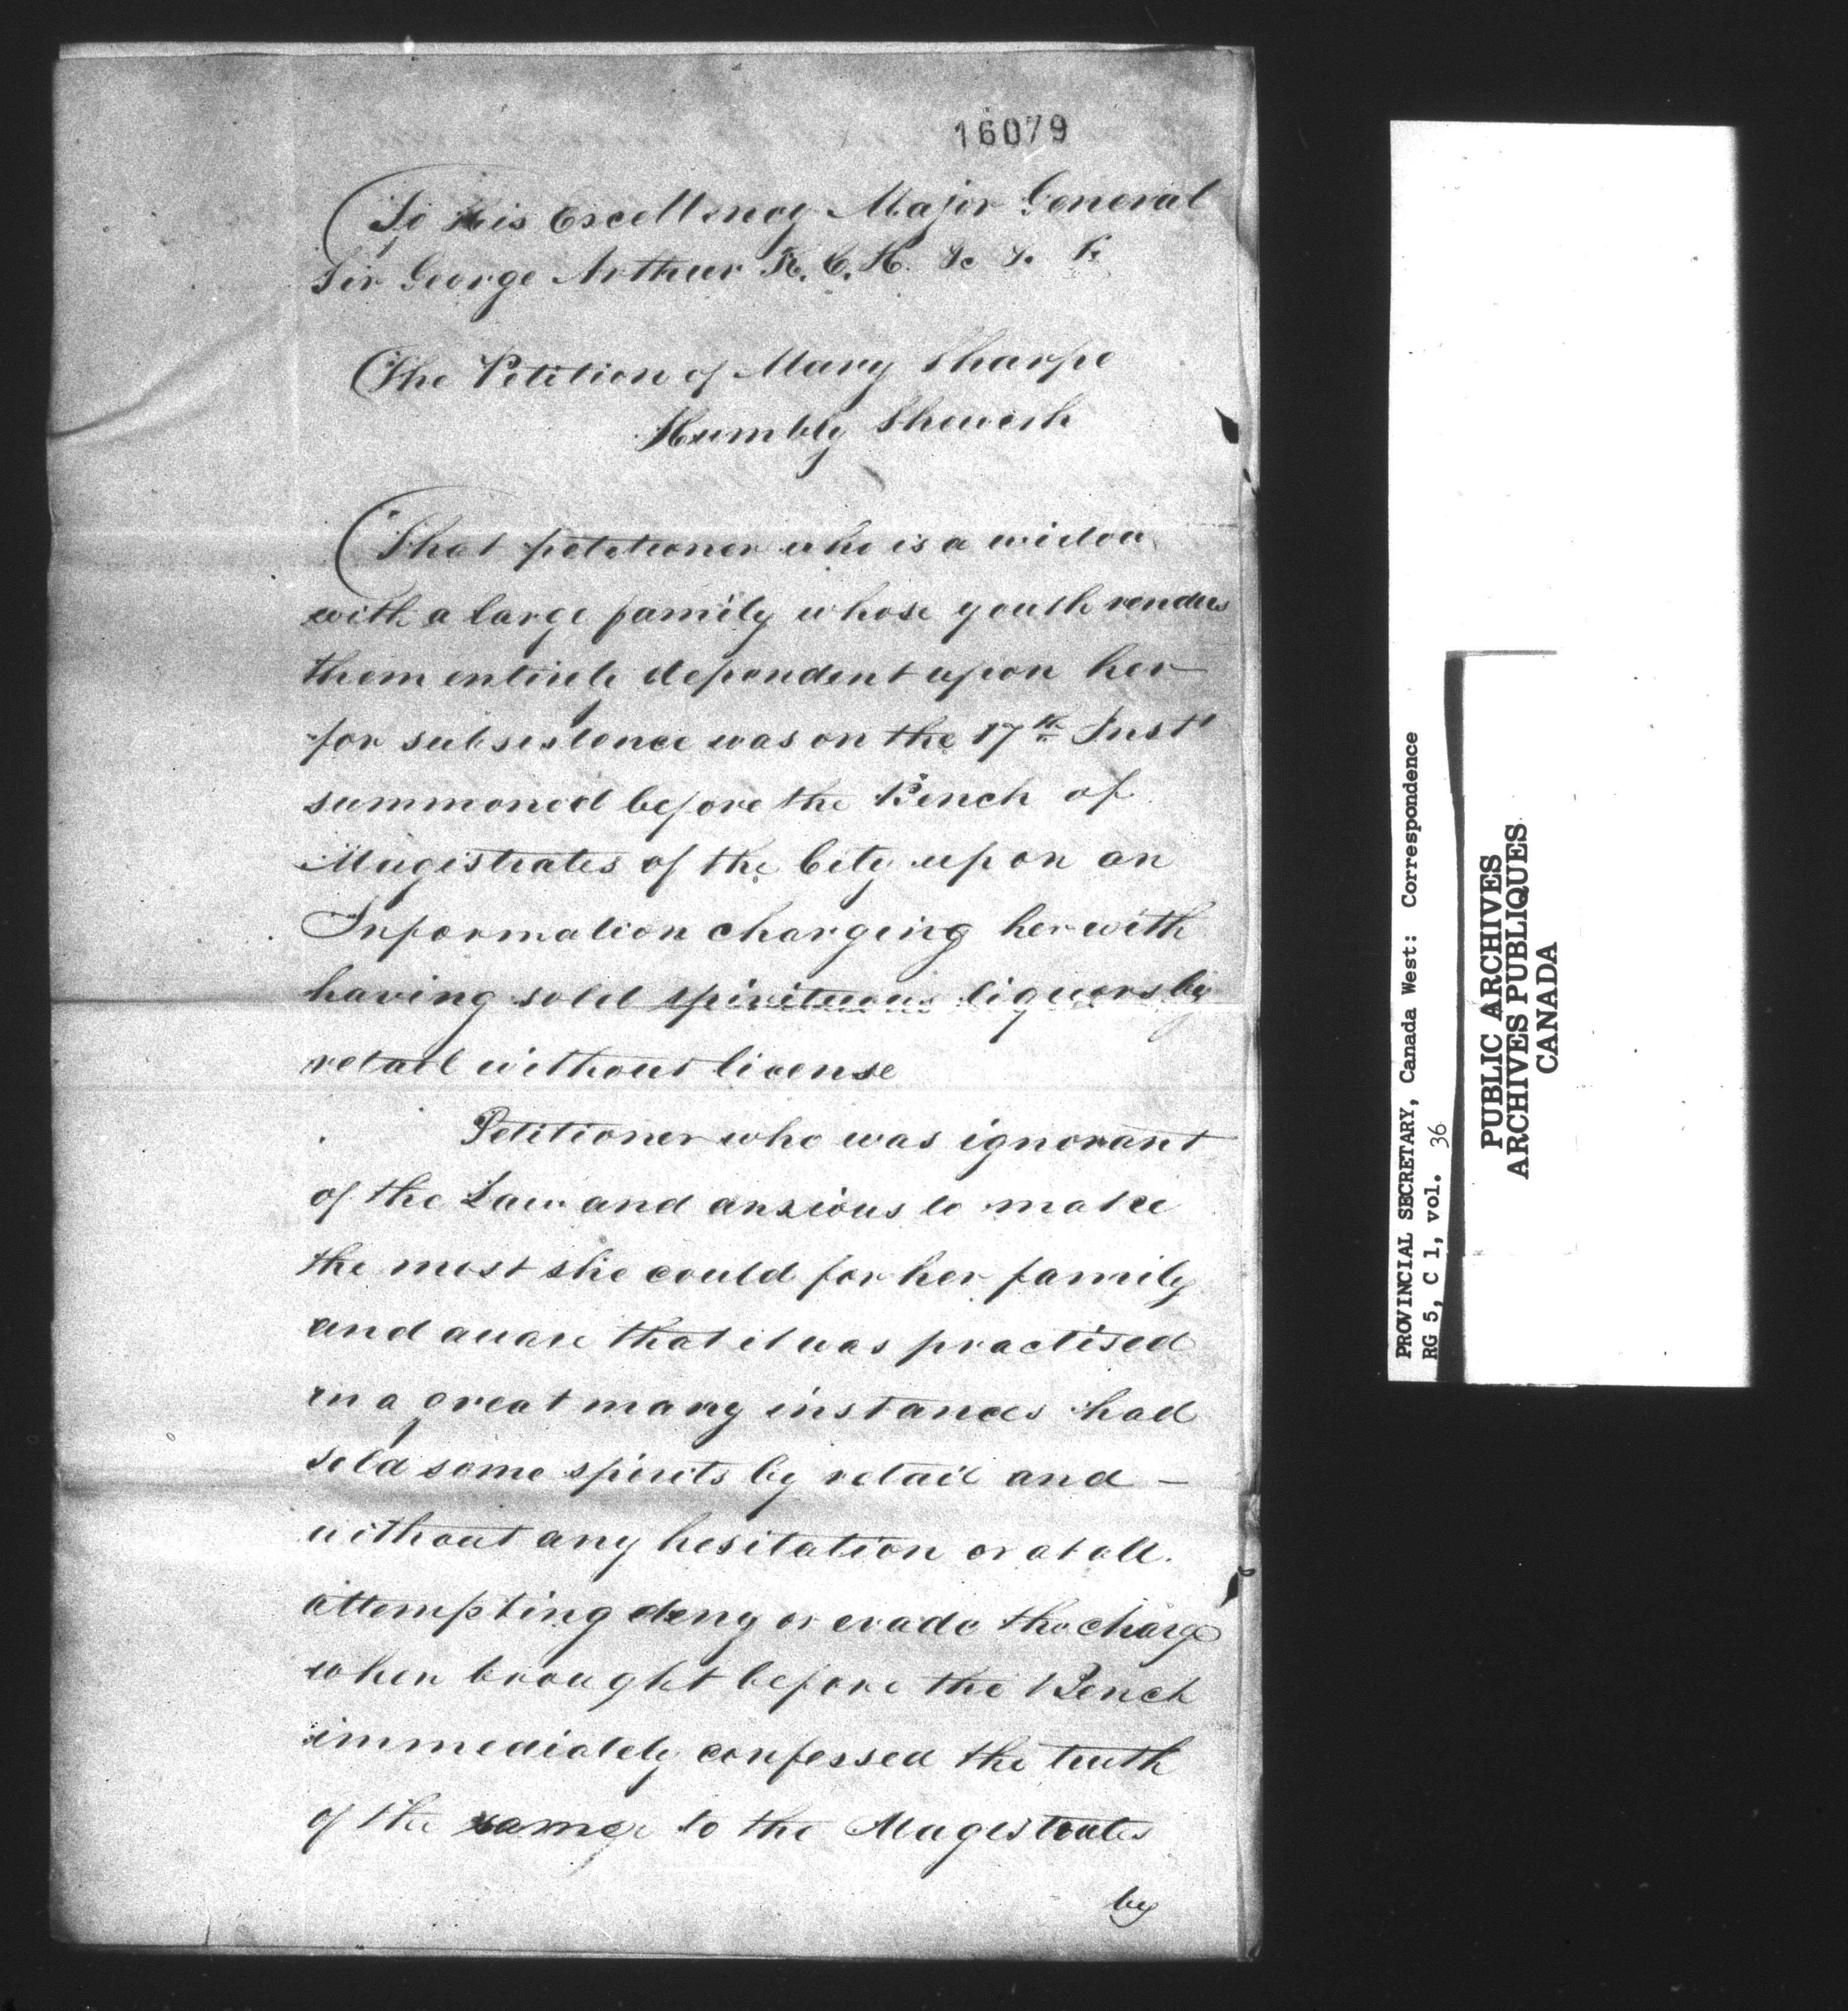 16079
To His Excellency Major General
Sir George Arthur K. C. H. &c &c &c
The Petition of Mary Sharpe
Humbly Sheweth
That petitioner who is a widow
with a large family whose youth renders
them entirely dependent upon her
for subsistence was on the 17th Inst
summoned before the Bench of
Magistrates of the City upon an
Information charging her with
having sold spirituous liquors by
retail without license
Petitioner who was ignorant
of the Law and anxious to make
the most she could for her family
and aware that it was practised
in a great many instances had
sold some spirits by retail and –
without any hesitation or at all
attempting deny or evade the charge
when brought before the Bench
immediately confessed the truth
of the same to the Magistrates
by
PROVINCIAL SECRETARY, Canada West: Correspondence
RG 5, C 1, vol. 36
PUBLIC ARCHIVES
ARCHIVES PUBLIQUES
CANADA